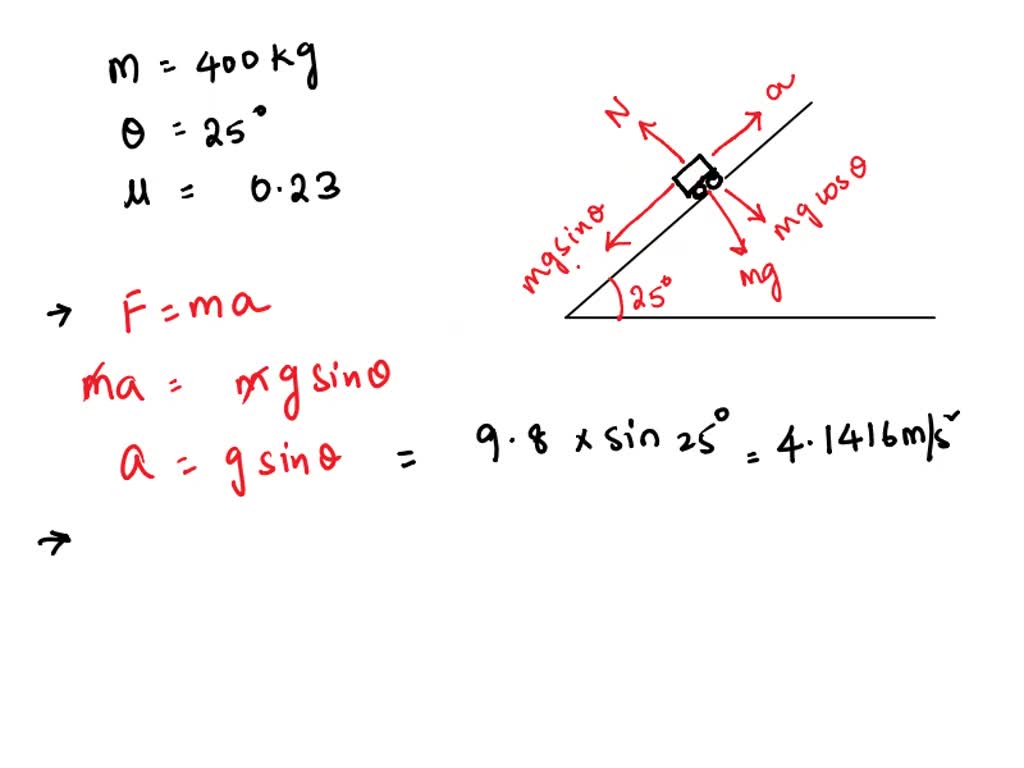 m = 400 kg
θ = 25°
μ = 0.23
N
a
mg sinθ
mg cosθ
mg
25°
→ F = ma
ma = mg sinθ
a = g sinθ = 9.8 × sin 25° = 4.1416 m/s²
→